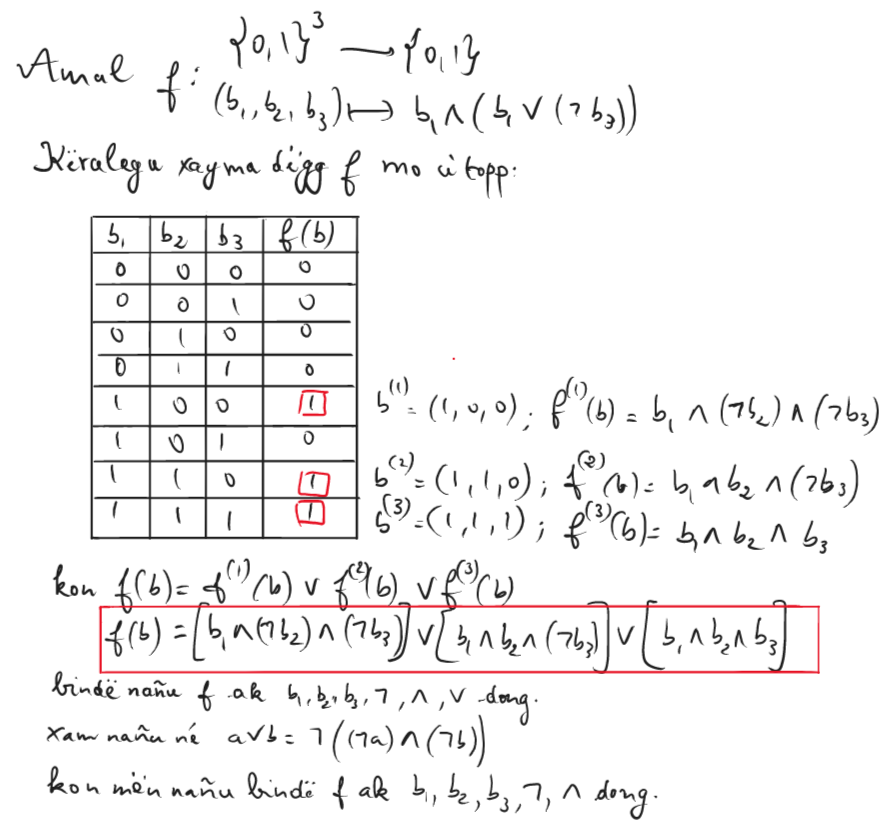 Amal f: {0,1}³ → {0,1}
(b₁, b₂, b₃) ↦ b₁ ∧ (b₁ ∨ (¬b₃))
Këralegu xayma dëgg f mo ci topp:
b₁ b₂ b₃ f(b)
0 0 0 0
0 0 1 0
0 1 0 0
0 1 1 0
1 0 0 1 b⁽¹⁾ = (1, 0, 0) ; f⁽¹⁾(b) = b₁ ∧ (¬b₂) ∧ (¬b₃)
1 0 1 0
1 1 0 1 b⁽²⁾ = (1, 1, 0) ; f⁽²⁾(b) = b₁ ∧ b₂ ∧ (¬b₃)
1 1 1 1 b⁽³⁾ = (1, 1, 1) ; f⁽³⁾(b) = b₁ ∧ b₂ ∧ b₃
kon f(b) = f⁽¹⁾(b) ∨ f⁽²⁾(b) ∨ f⁽³⁾(b)
f(b) = [b₁ ∧ (¬b₂) ∧ (¬b₃)] ∨ [b₁ ∧ b₂ ∧ (¬b₃)] ∨ [b₁ ∧ b₂ ∧ b₃]
bindë nañu f ak b₁, b₂, b₃, ¬, ∧, ∨ dong.
xam nañu né a∨b = ¬((¬a) ∧ (¬b))
kon mën nañu bindë f ak b₁, b₂, b₃, ¬, ∧ dong.